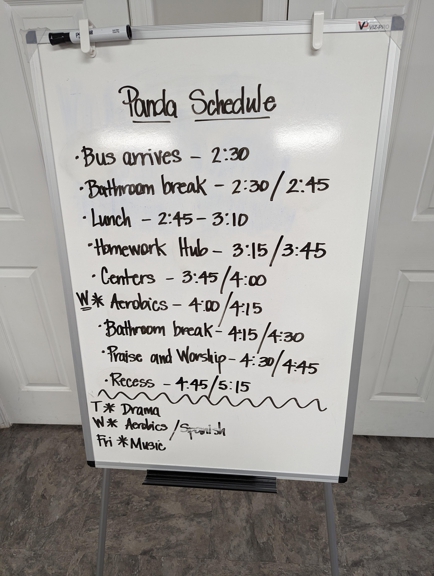 Panda Schedule
· Bus arrives - 2:30
· Bathroom break - 2:30/2:45
· Lunch - 2:45 - 3:10
· Homework Hub - 3:15/3:45
· Centers - 3:45/4:00
W* Aerobics - 4:00/4:15
· Bathroom break - 4:15/4:30
· Praise and Worship - 4:30/4:45
· Recess - 4:45/5:15
T* Drama
W* Aerobics/Spanish
Fri *Music